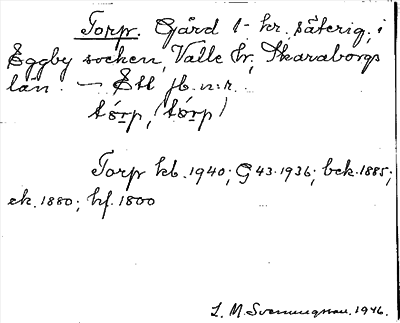 Torp. Gård 1- kr. säterig; i
Eggby socken, Valle hr, Skaraborgs
län. - Ett jb.n:r.
tórp, (tórp)
Torp kb. 1940; G 43. 1936; bek. 1885;
ek. 1880; hf. 1800
L. M. Svenungsson. 1946.